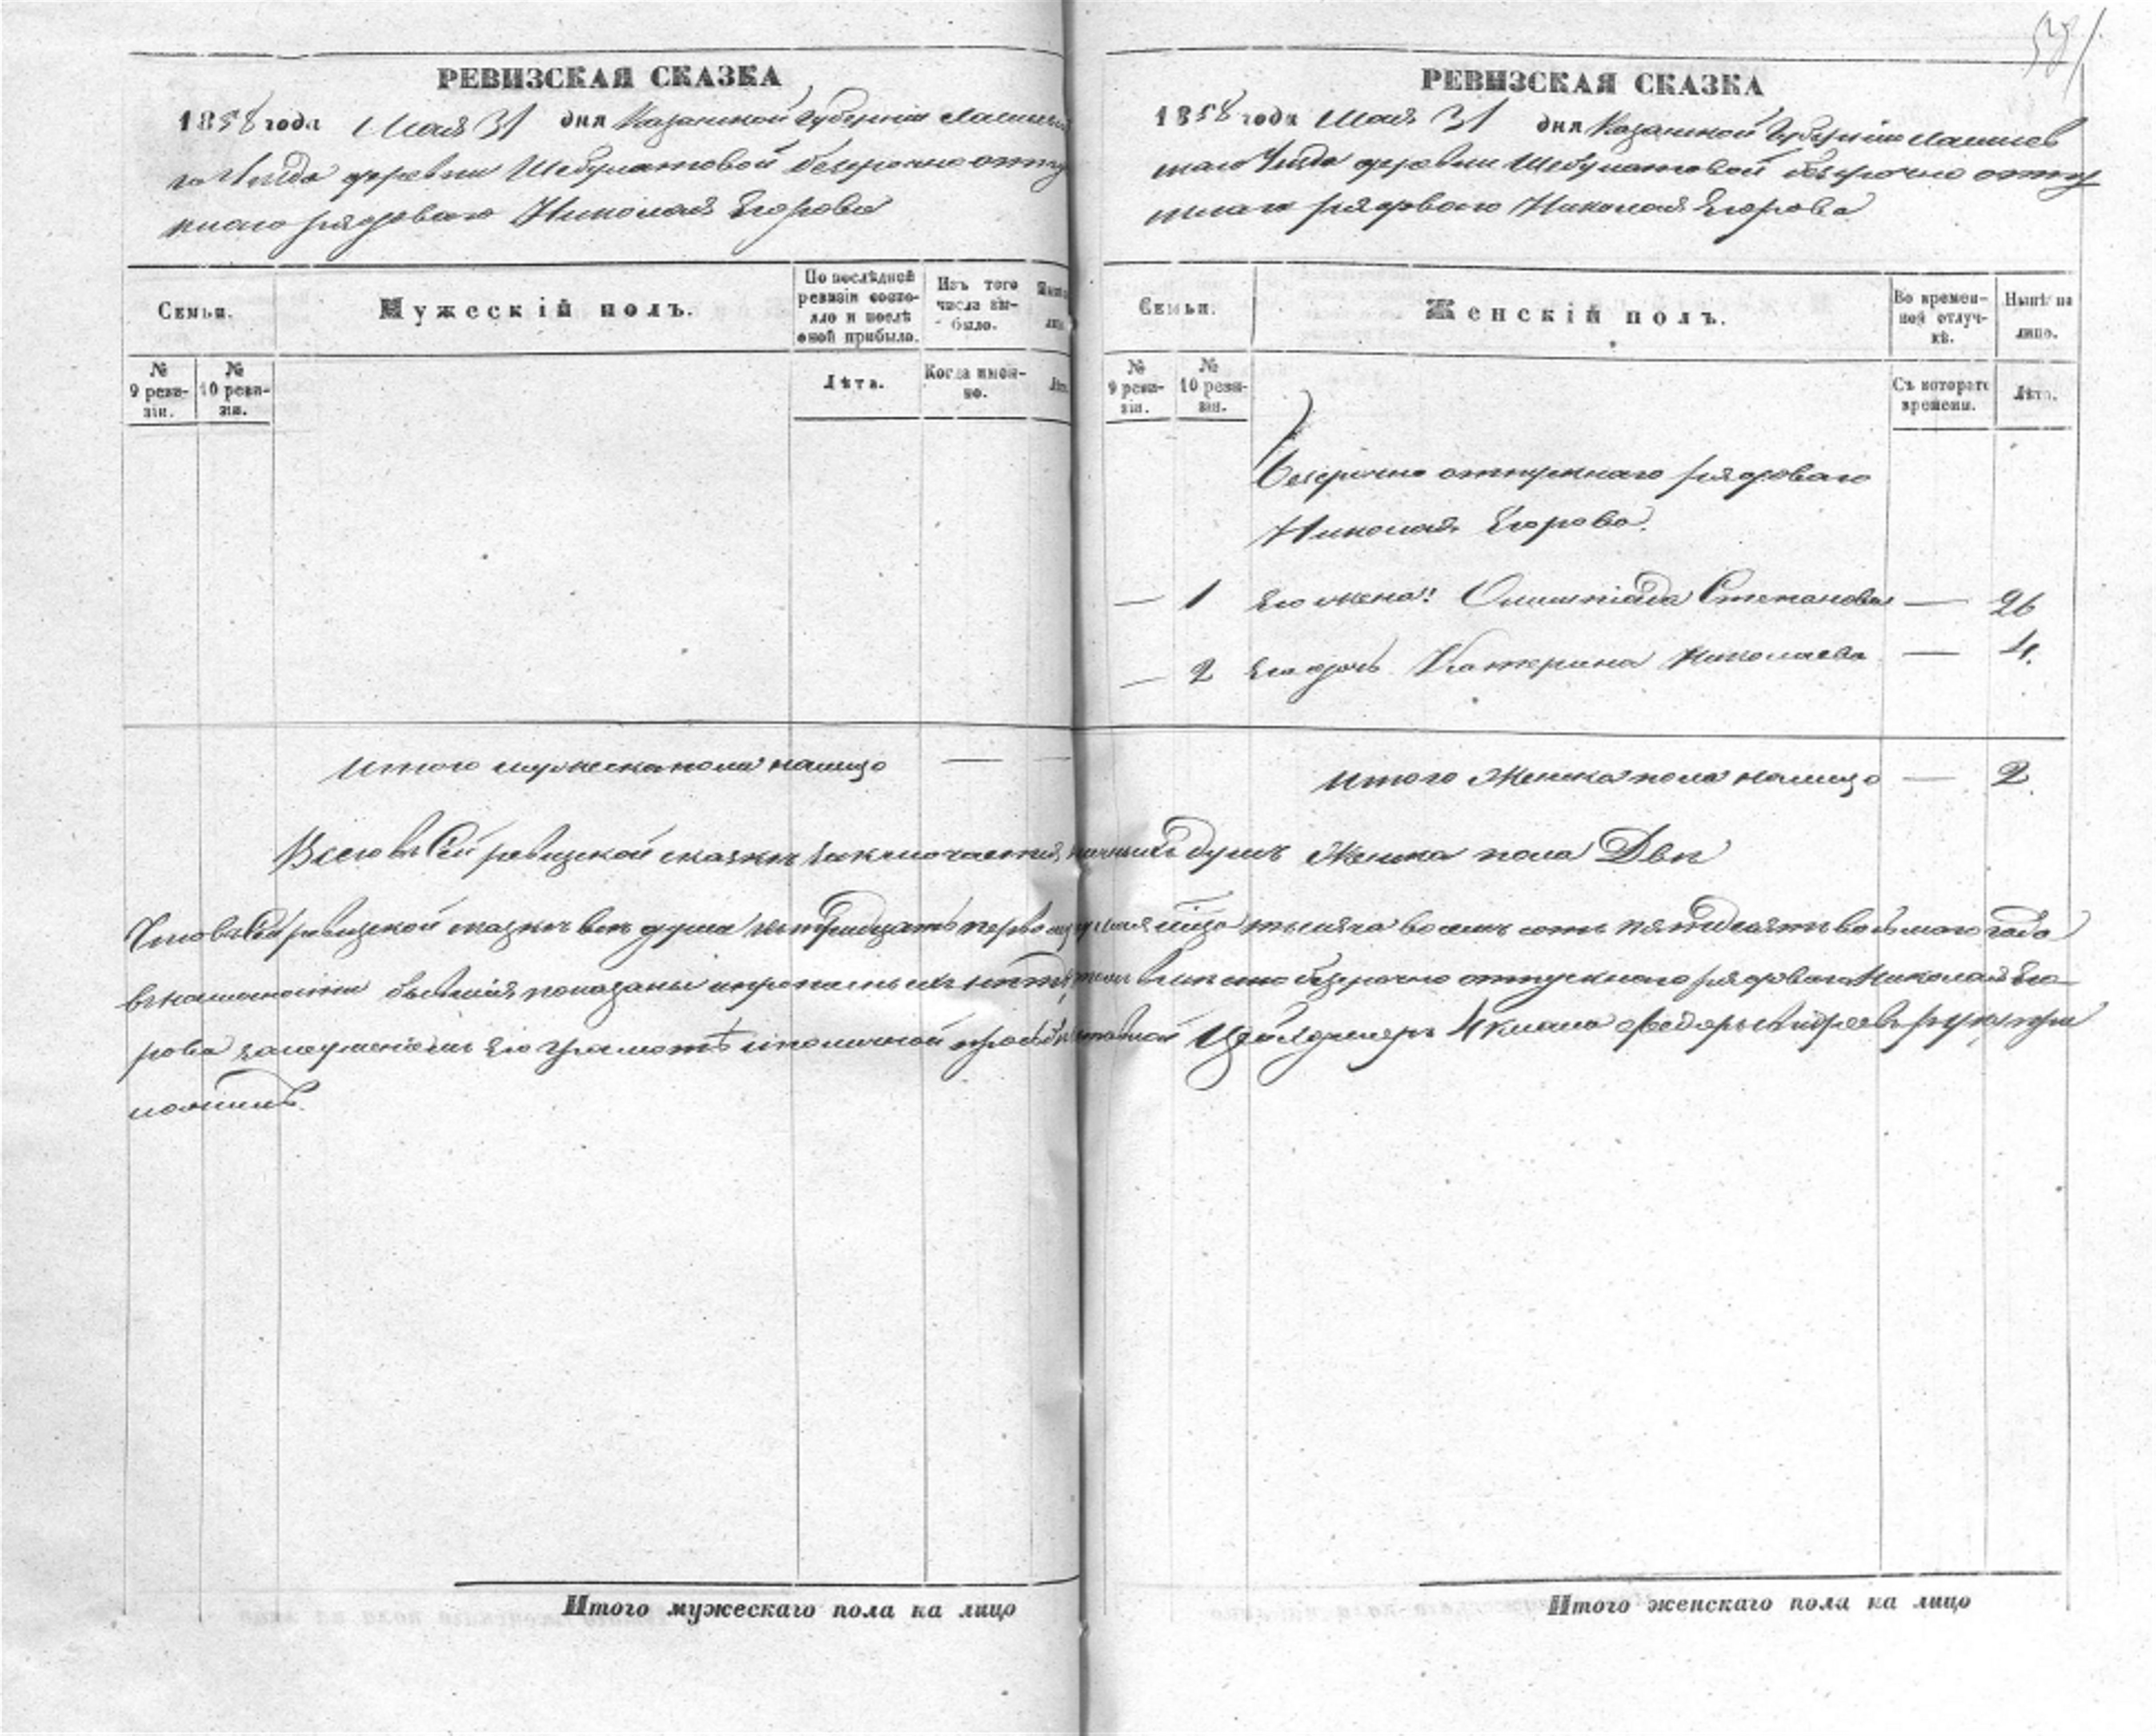 РЕВИЗСКАЯ СКАЗКА
1858 года Мая 31 дня Казанской Губернии Лаишевска
го Уезда деревни Шебулатовой безсрочно отпу
скнаго рядоваго Николая Егорова
Семьи.
Мужескій полъ.
По послѣдней ревизіи состояло и послѣ оной прибыло.
Изъ того числа выбыло.
№ 9 ревизіи.
№ 10 ревизіи.
Лѣта.
Когда именно.
Итого мужеска пола налицо —
Итого мужескаго пола на лицо
РЕВИЗСКАЯ СКАЗКА
1858 года Мая 31 дня Казанской Губерніи Лаишев
скаго Уезда деревни Шебулатовой безсрочно отпу
скнаго рядоваго Николая Егорова
Семьи.
Женскій полъ.
Во временной отлучкѣ.
Нынѣ на лицо.
№ 9 ревизіи.
№ 10 ревизіи.
Съ котораго времени.
Лѣта.
Безсрочно отпускнаго рядоваго
Николая Егорова.
— 1 Его жена: Олимпіада Степанова — 26
— 2 Его дочь Катерина Николаева — 4.
Итого Женска пола налицо — 2
Всего въ Сей ревизской сказке заключается наличныхъ душъ Женска пола Две
Что въ Сей ревизской сказке все души по тридцать первое мая тысяча восемь сотъ пятидесятъ восьмаго года
въ наличности бывшія показаны и прописныхъ нетъ, въ томъ вместо безсрочно отпускнаго рядоваго Николая Его-
рова за неумениемъ его грамоте и по личной просьбе Цейхдинеръ 4 класа Федоръ Андреевъ руку при
ложилъ.
Итого женскаго пола на лицо